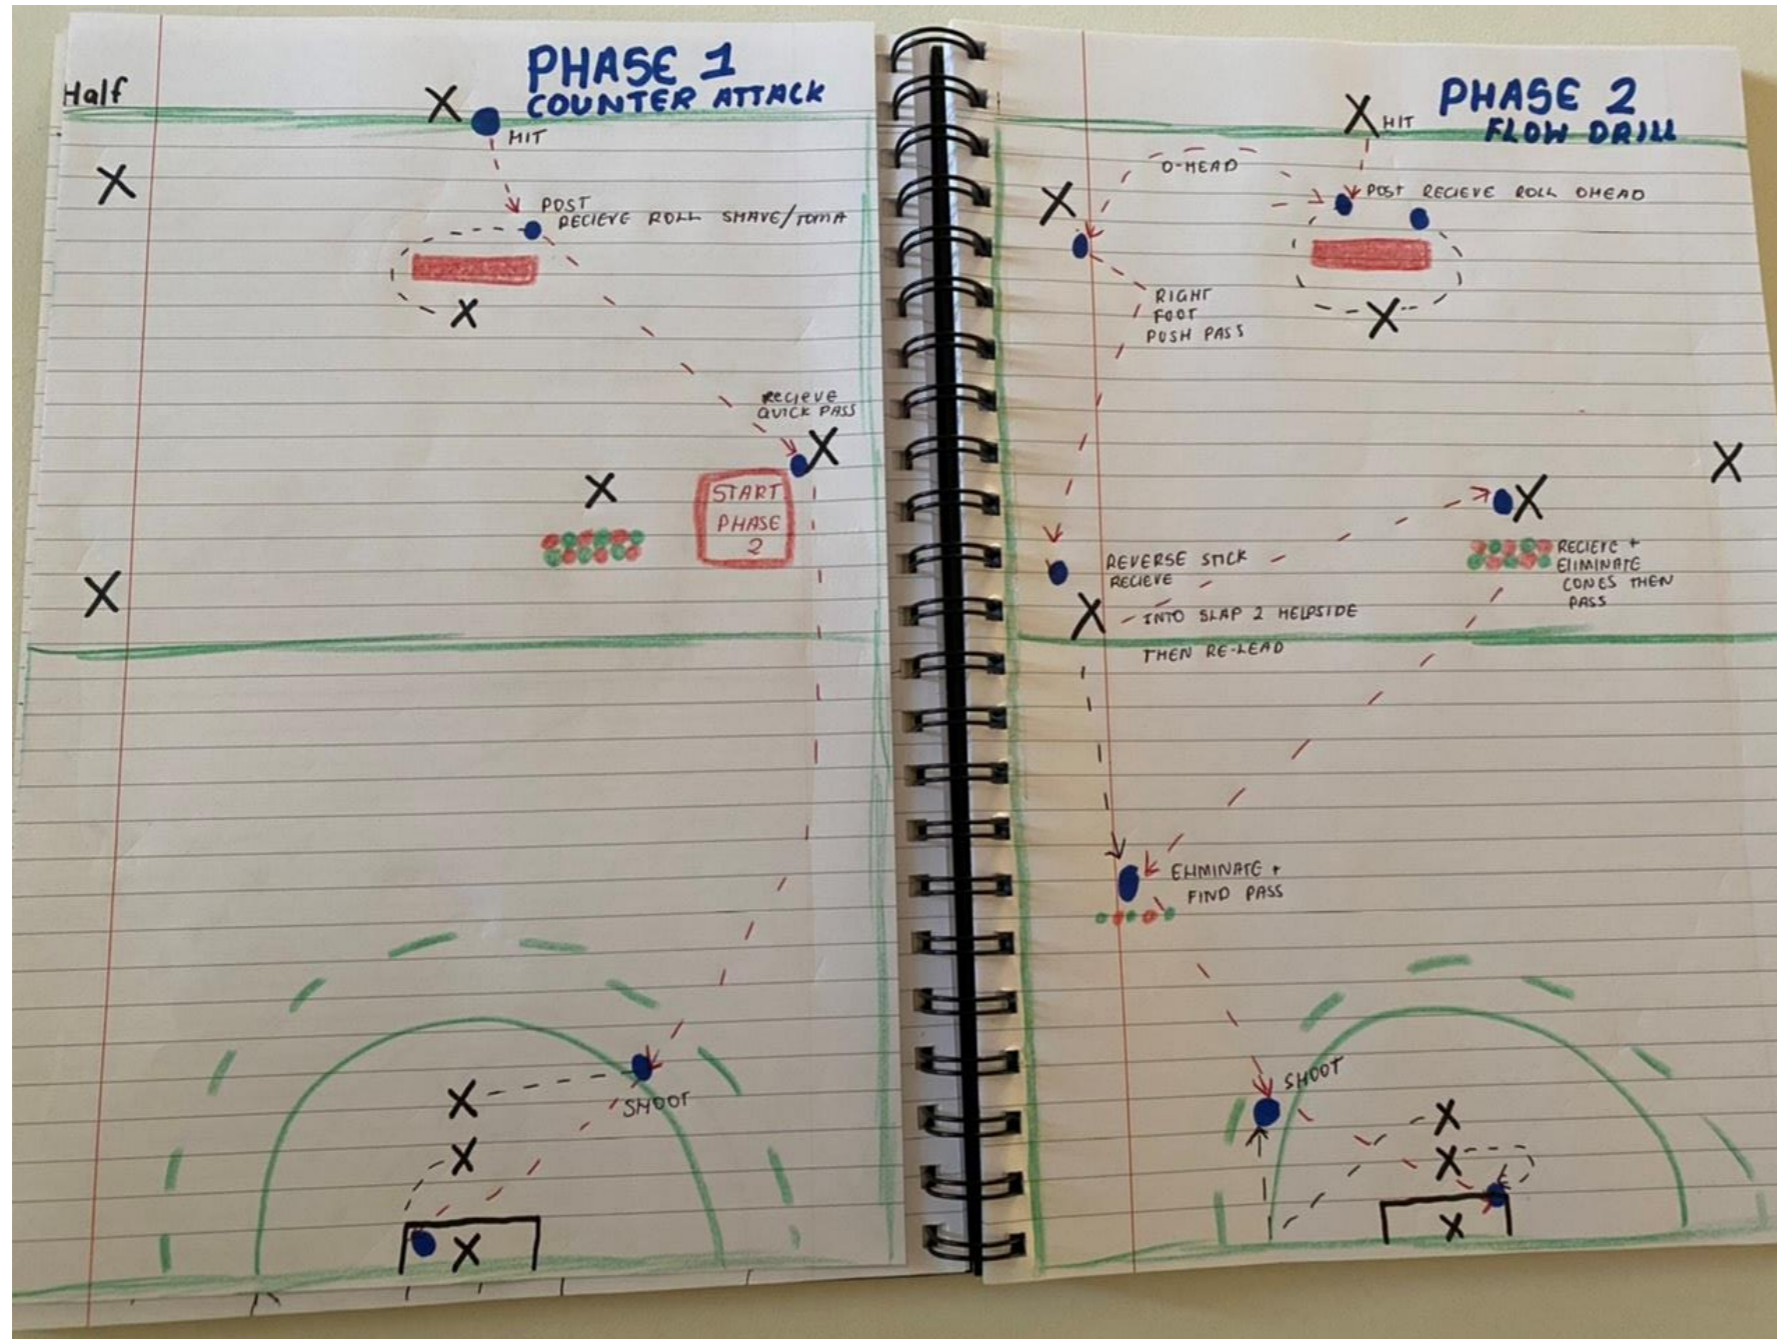 Half
PHASE 1
COUNTER ATTACK
HIT
POST
RECIEVE ROLL SHAVE/TOMA
RECIEVE
QUICK PASS
START
PHASE
2
SHOOT
PHASE 2
FLOW DRILL
HIT
O-HEAD
POST RECIEVE ROLL OHEAD
RIGHT
FOOT
PUSH PASS
REVERSE STICK
RECIEVE
INTO SLAP 2 HELPSIDE
THEN RE-LEAD
RECIEVE +
ELIMINATE
CONES THEN
PASS
ELIMINATE +
FIND PASS
SHOOT